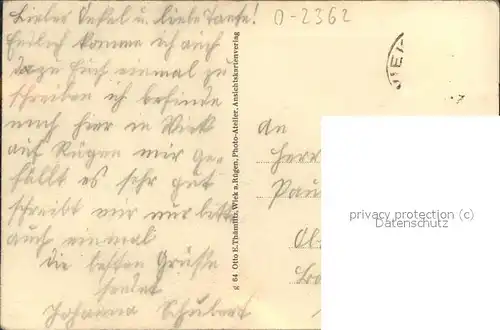 Lieber Onkel u. liebe Tante!
Endlich komme ich auch
dazu Euch einmal zu
schreiben ich befinde
mich hier in Wiek
auf Rügen mir ge-
fällt es sehr gut
schreibt mir nur bitte
auch einmal
die besten Grüsse
sendet
Johanna Schubert
g 64 Otto E. Thämlitz, Wiek a. Rügen, Photo-Atelier, Ansichtskartenverlag
0-2362
WIEK
An
Herr
Pau
Ob
privacy protection (C)
Datenschutz